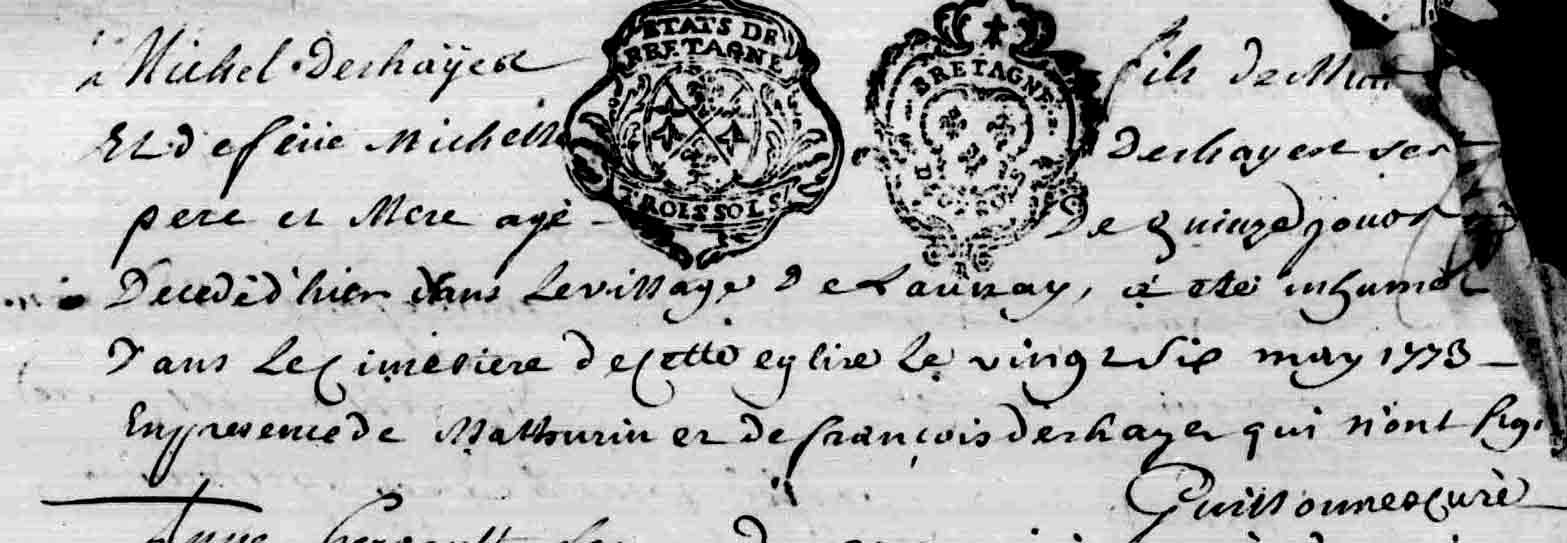 Michel Deshayes fils de
ETATS DE
BRETAGNE
TROIS SOLS
BRETAGNE
Et de feüe Michelle Deshayes ses
pere et Mere agé - De quinze jours
Decedé d'hier dans Le village De Launay, a eté inhumé
Dans Le Cimetiere de Cette eglise Le vingt Six may 1773 -
En presence de Mathurin et de françois deshayes qui n'ont sig
curé